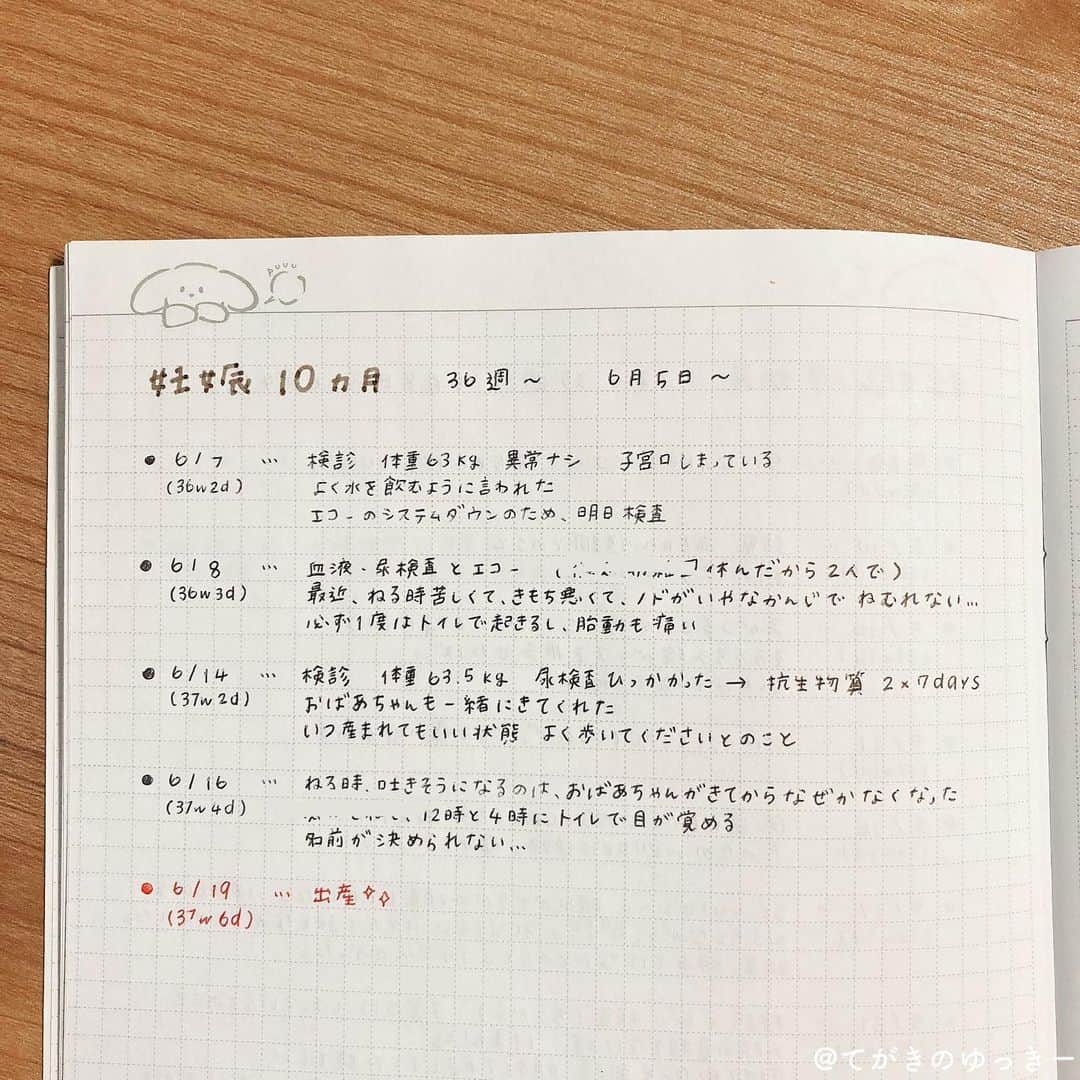 puuu
妊娠 10ヵ月 36週~ 6月5日~
● 6/7 … 検診 体重63kg 異常ナシ 子宮口しまっている
(36w2d) よく水を飲むように言われた
エコーのシステムダウンのため、明日検査
● 6/8 … 血液・尿検査とエコー ( 休んだから2人で)
(36w3d) 最近、ねる時苦しくて、きもち悪くて、ノドがいやなかんじでねむれない…
必ず1度はトイレで起きるし、胎動も痛い
● 6/14 … 検診 体重63.5kg 尿検査ひっかかった → 抗生物質 2×7days
(37w2d) おばあちゃんも一緒にきてくれた
いつ産まれてもいい状態 よく歩いてくださいとのこと
● 6/16 … ねる時、吐きそうになるのは、おばあちゃんがきてからなぜかなくなった
(37w4d) 、12時と4時にトイレで目が覚める
名前が決められない…
● 6/19 … 出産✧✧
(37w6d)
@てがきのゆっきー